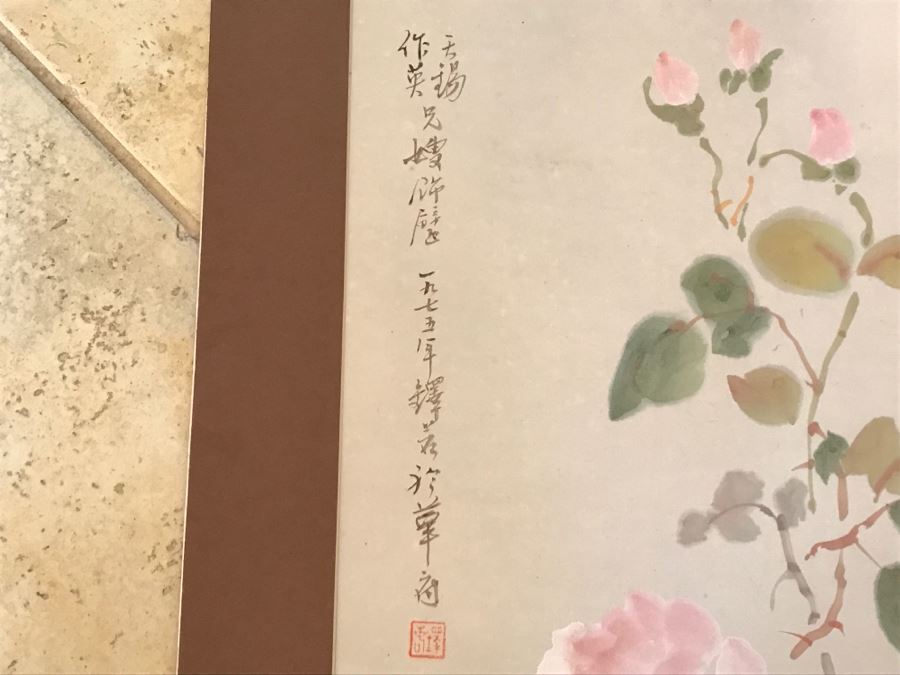 天錫
作英
兄嫂飾壁
一九七五年鐸若於華府